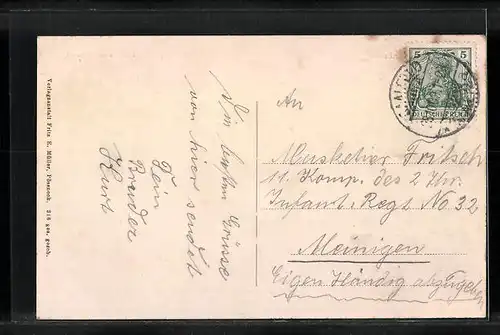 Die besten Grüsse
von hier sendet
Dein
Bruder
Kurt
An
Musketier Fritsch
11. Komp. des 2 Thr.
Infant. Regt No 32
Meinigen
Eigen Händig abzugeben
5 5
DEUTSCHES REICH
Verlagsanstalt Fritz E. Müller, Pössneck. 216 ges. gesch.